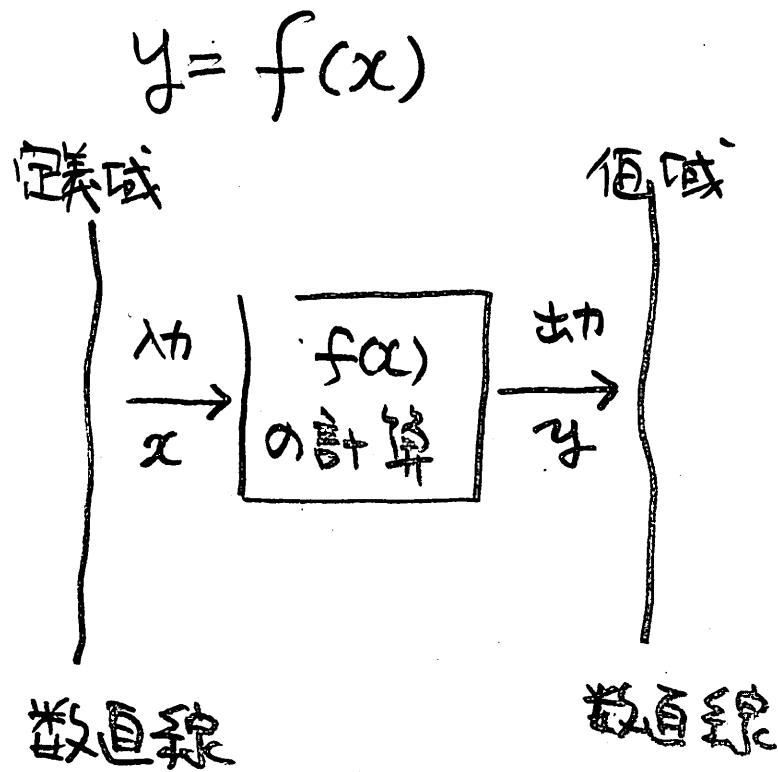 y = f(x)
定義域
値域
入力
x
f(x)
の計算
出力
y
数直線
数直線